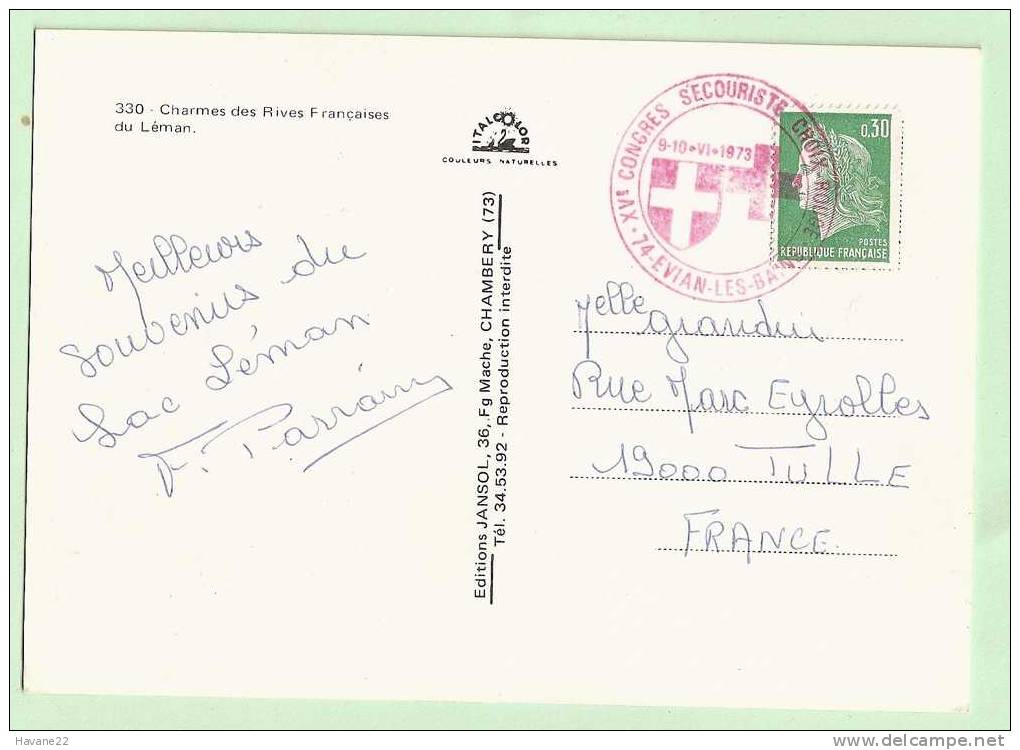 330 - Charmes des Rives Françaises
du Léman.
ITALCOLOR
COULEURS NATURELLES
Meilleurs
souvenirs du
Lac Léman
Editions JANSOL, 36, Fg Mache, CHAMBERY (73)
Tél. 34.53.92 - Reproduction interdite
XVe CONGRES SECOURISTE CROIX ROUGE
9-10•VI•1973
74-EVIAN-LES-BAINS
0,30
POSTES
REPUBLIQUE FRANÇAISE
Melle
Rue Marc Eyrolles
19000 TULLE
FRANCE.
Havane22
www.delcampe.net